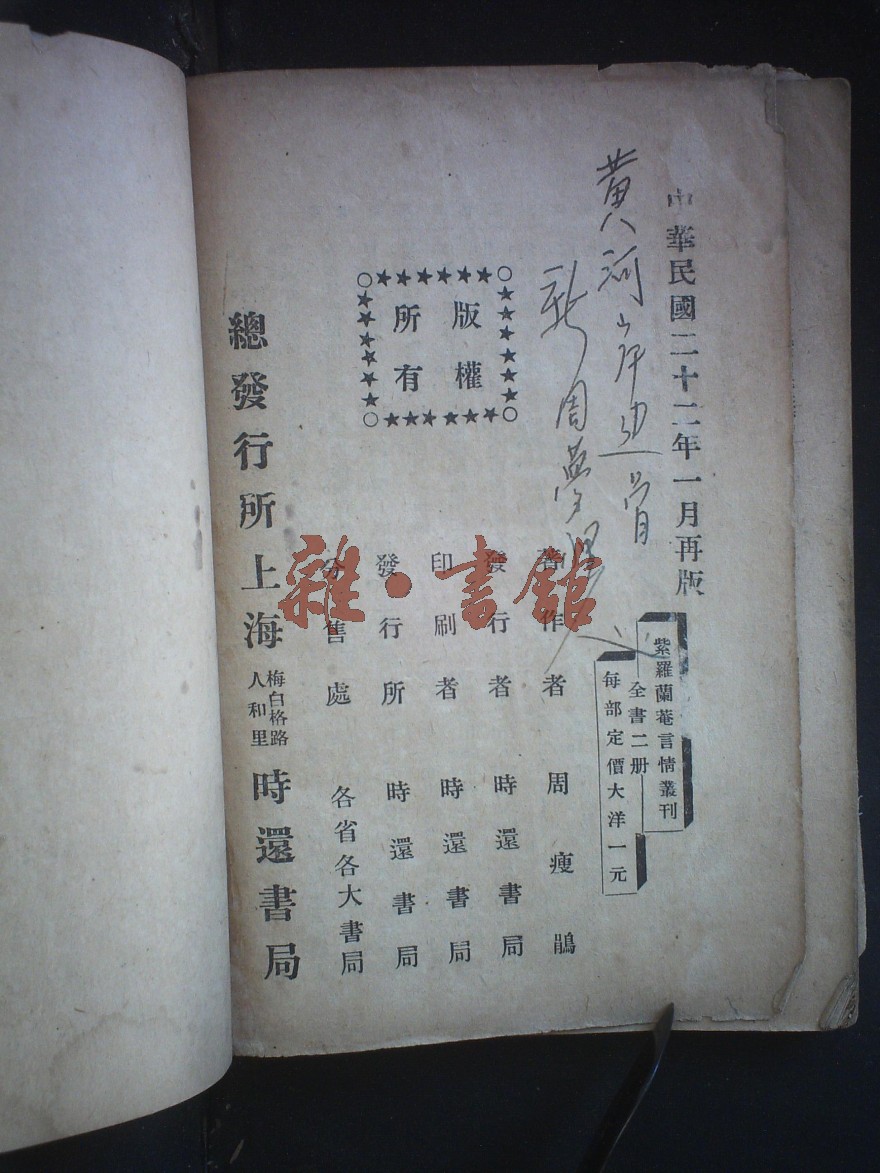 中華民國二十二年一月再版
紫羅蘭菴言情叢刊
全書二册
每部定價大洋一元
黄河岸边
新周夢
版權所有
著作者 周瘦鵑
發行者 時還書局
印刷者 時還書局
發行所 時還書局
分售處 各省各大書局
總發行所上海梅白格路人和里時還書局
雜·書館